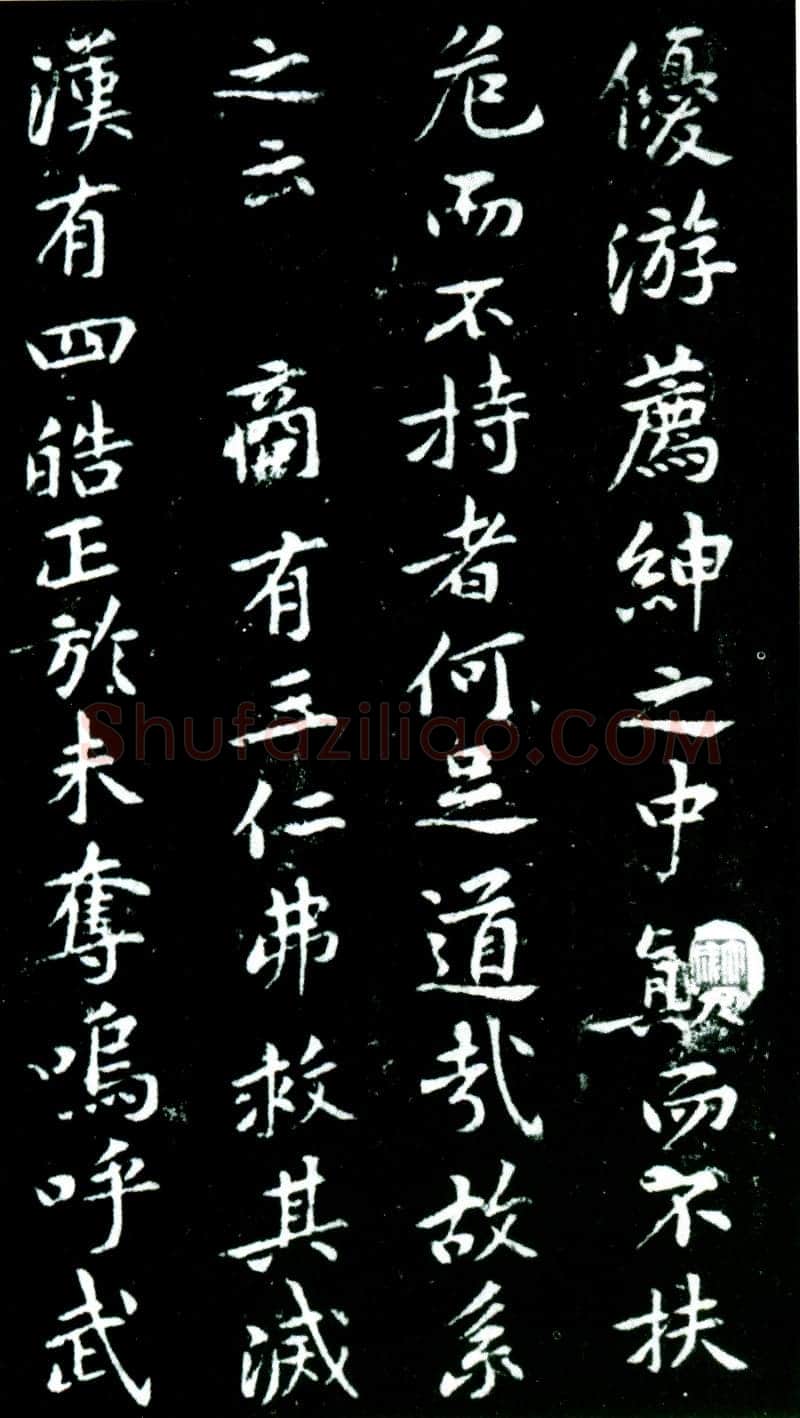 優游薦紳之中顛而不扶
危而不持者何足道哉故系
之云 商有三仁弗救其滅
漢有四皓正於未奪嗚呼武
Shufaziliao.COM